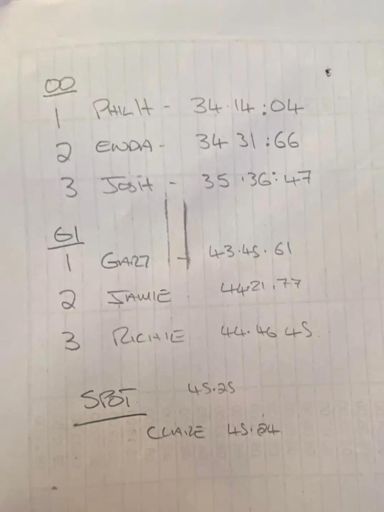 00
1 PHIL H - 34.14:04
2 ENDA - 34 31:66
3 JOSH - 35.36:47
G1
1 GARY - 43.45.61
2 JAMIE 44.21.77
3 RICHIE 44.46 45
SBT 45.25
CLAIRE 45.24